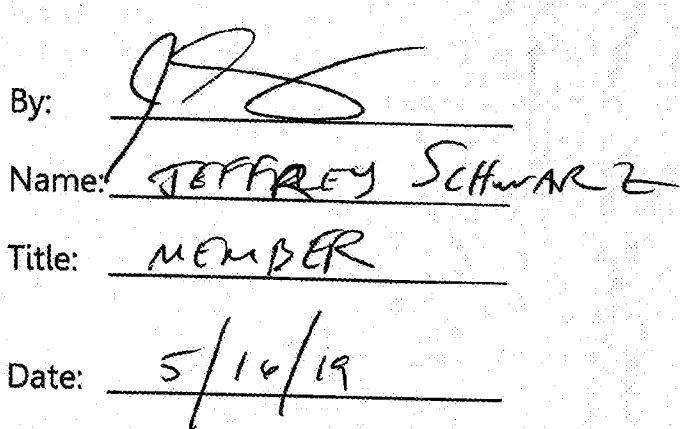 By:
Name: JEFFREY SCHWARZ
Title: MEMBER
Date: 5/16/19